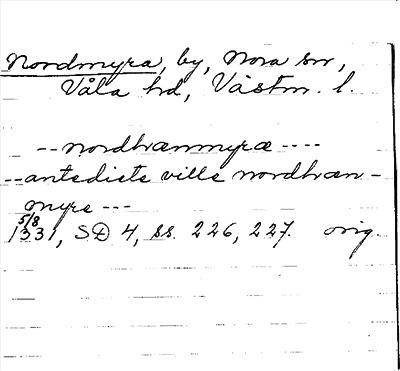 Nordmyra, by, Nora sn,
Våla hd, Västm. l.
-- nordhænmyræ ----
-- antedicte ville nordhæn-
myre ---
5/8
1331, SD 4, ss. 226, 227. orig.